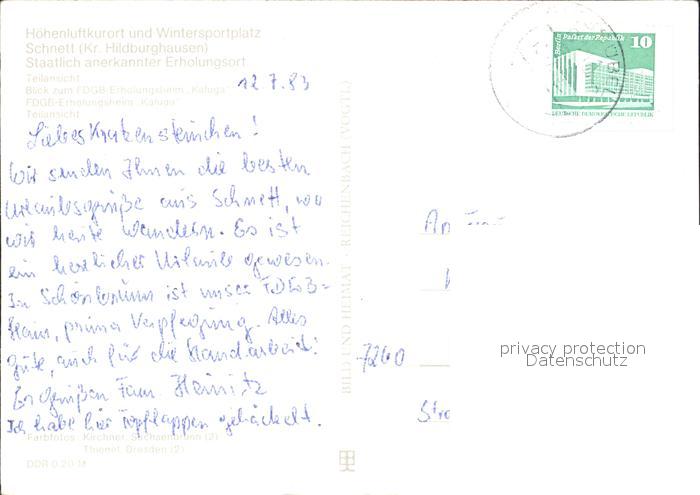 Höhenluftkurort und Wintersportplatz
Schnett (Kr. Hildburghausen)
Staatlich anerkannter Erholungsort
Teilansicht
Blick zum FDGB-Erholungsheim „Kaluga"
FDGB-Erholungsheim „Kaluga"
Teilansicht
12.7.83
Liebes Knatensteinchen!
Wir senden Ihnen die besten
Urlaubsgrüße aus Schnett, wo
wir heute wandern. Es ist
ein herrlicher Urlaub gewesen.
In Schönbrunn ist unser FDGB=
Heim, prima Verpflegung. Alles
Gute, auch für die Handarbeit!
Es grüßen Fam. Heinitz
Ich habe hier Topflappen gehäckelt.
Farbfotos: Kirchner, Sachsenbrunn (2)
Thienel, Dresden (2)
DDR 0,20 M
BILD UND HEIMAT · REICHENBACH (VOGTL)
Berlin Palast der Republik 10
DEUTSCHE DEMOKRATISCHE REPUBLIK
An
7260
privacy protection
Datenschutz
Str